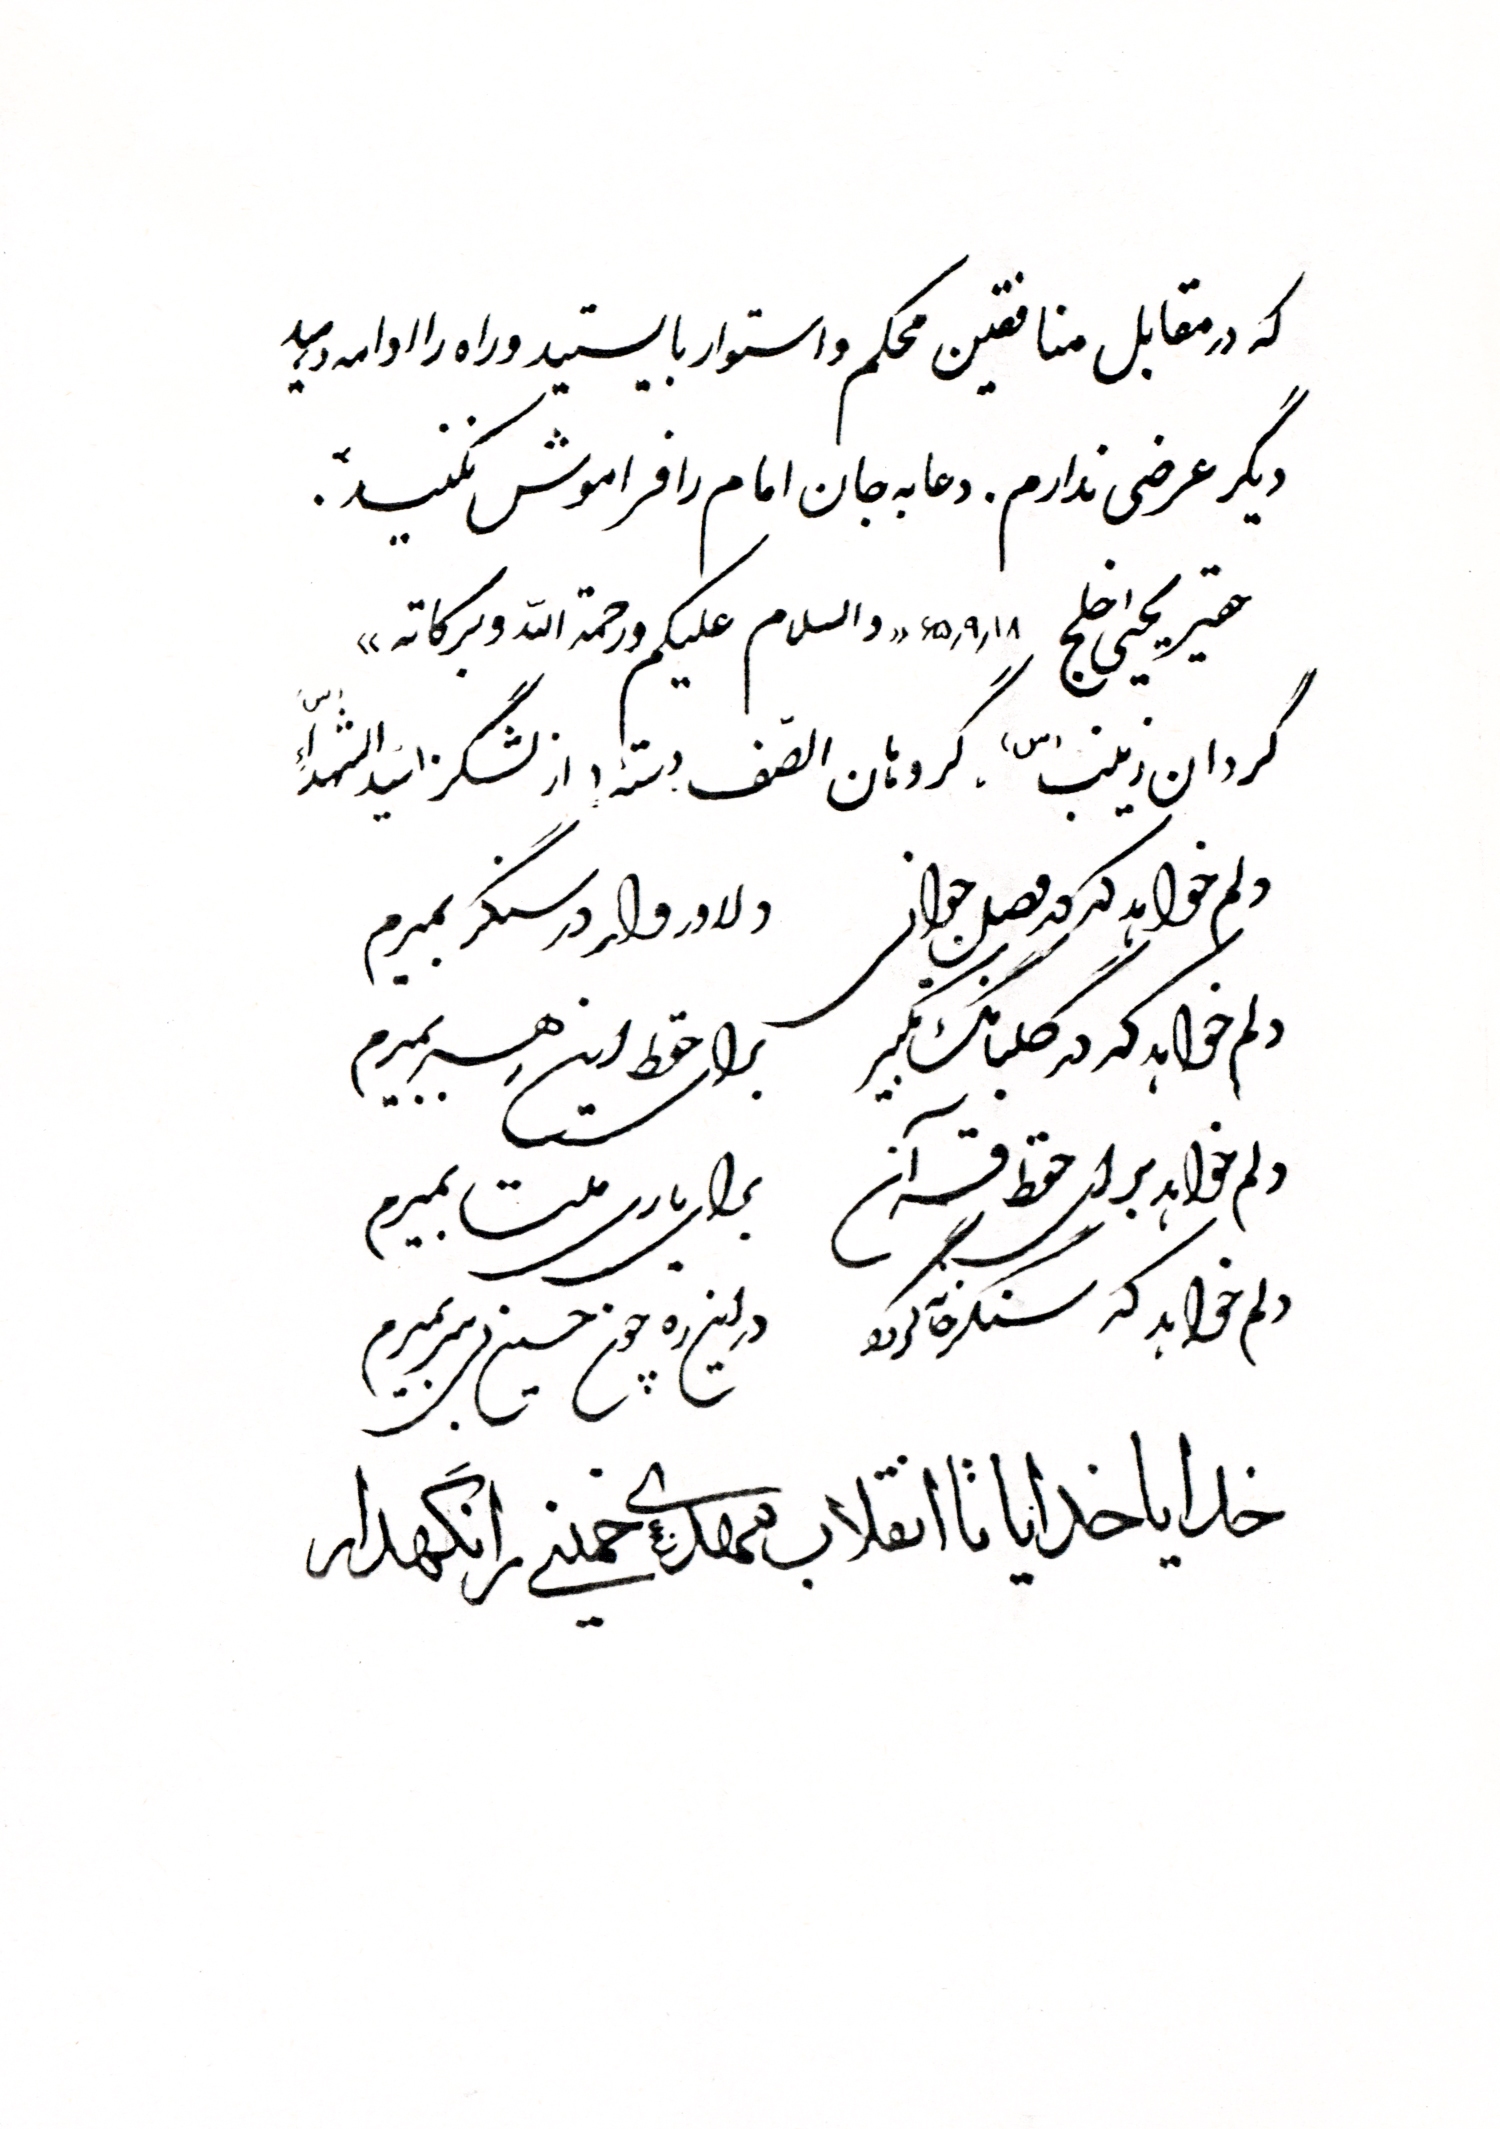 که در مقابل منافقین محکم و استوار بایستید و راه را ادامه دهید
دیگر عرضی ندارم. دعا به جان امام را فراموش نکنید.
حقیر یحیی اخلج ۶۵,۹,۱۸ «والسلام علیکم ورحمة الله وبرکاته»
گردان زینب (س)، گروهان الصّف دستهٔ ۱ از لشگر ۱۰ سیدالشهداء (س)
دلم خواهد که در فصل جوانی دلاور وار در سنگر بمیرم
دلم خواهد که در گلبانگ تکبیر برای حفظ این رهبر بمیرم
دلم خواهد برای حفظ قرآن برای یاری ملت بمیرم
دلم خواهد که سنگر خانه گردد در این ره چون حسین بی سر بمیرم
خدایا خدایا تا انقلاب مهدی خمینی را نگهدار